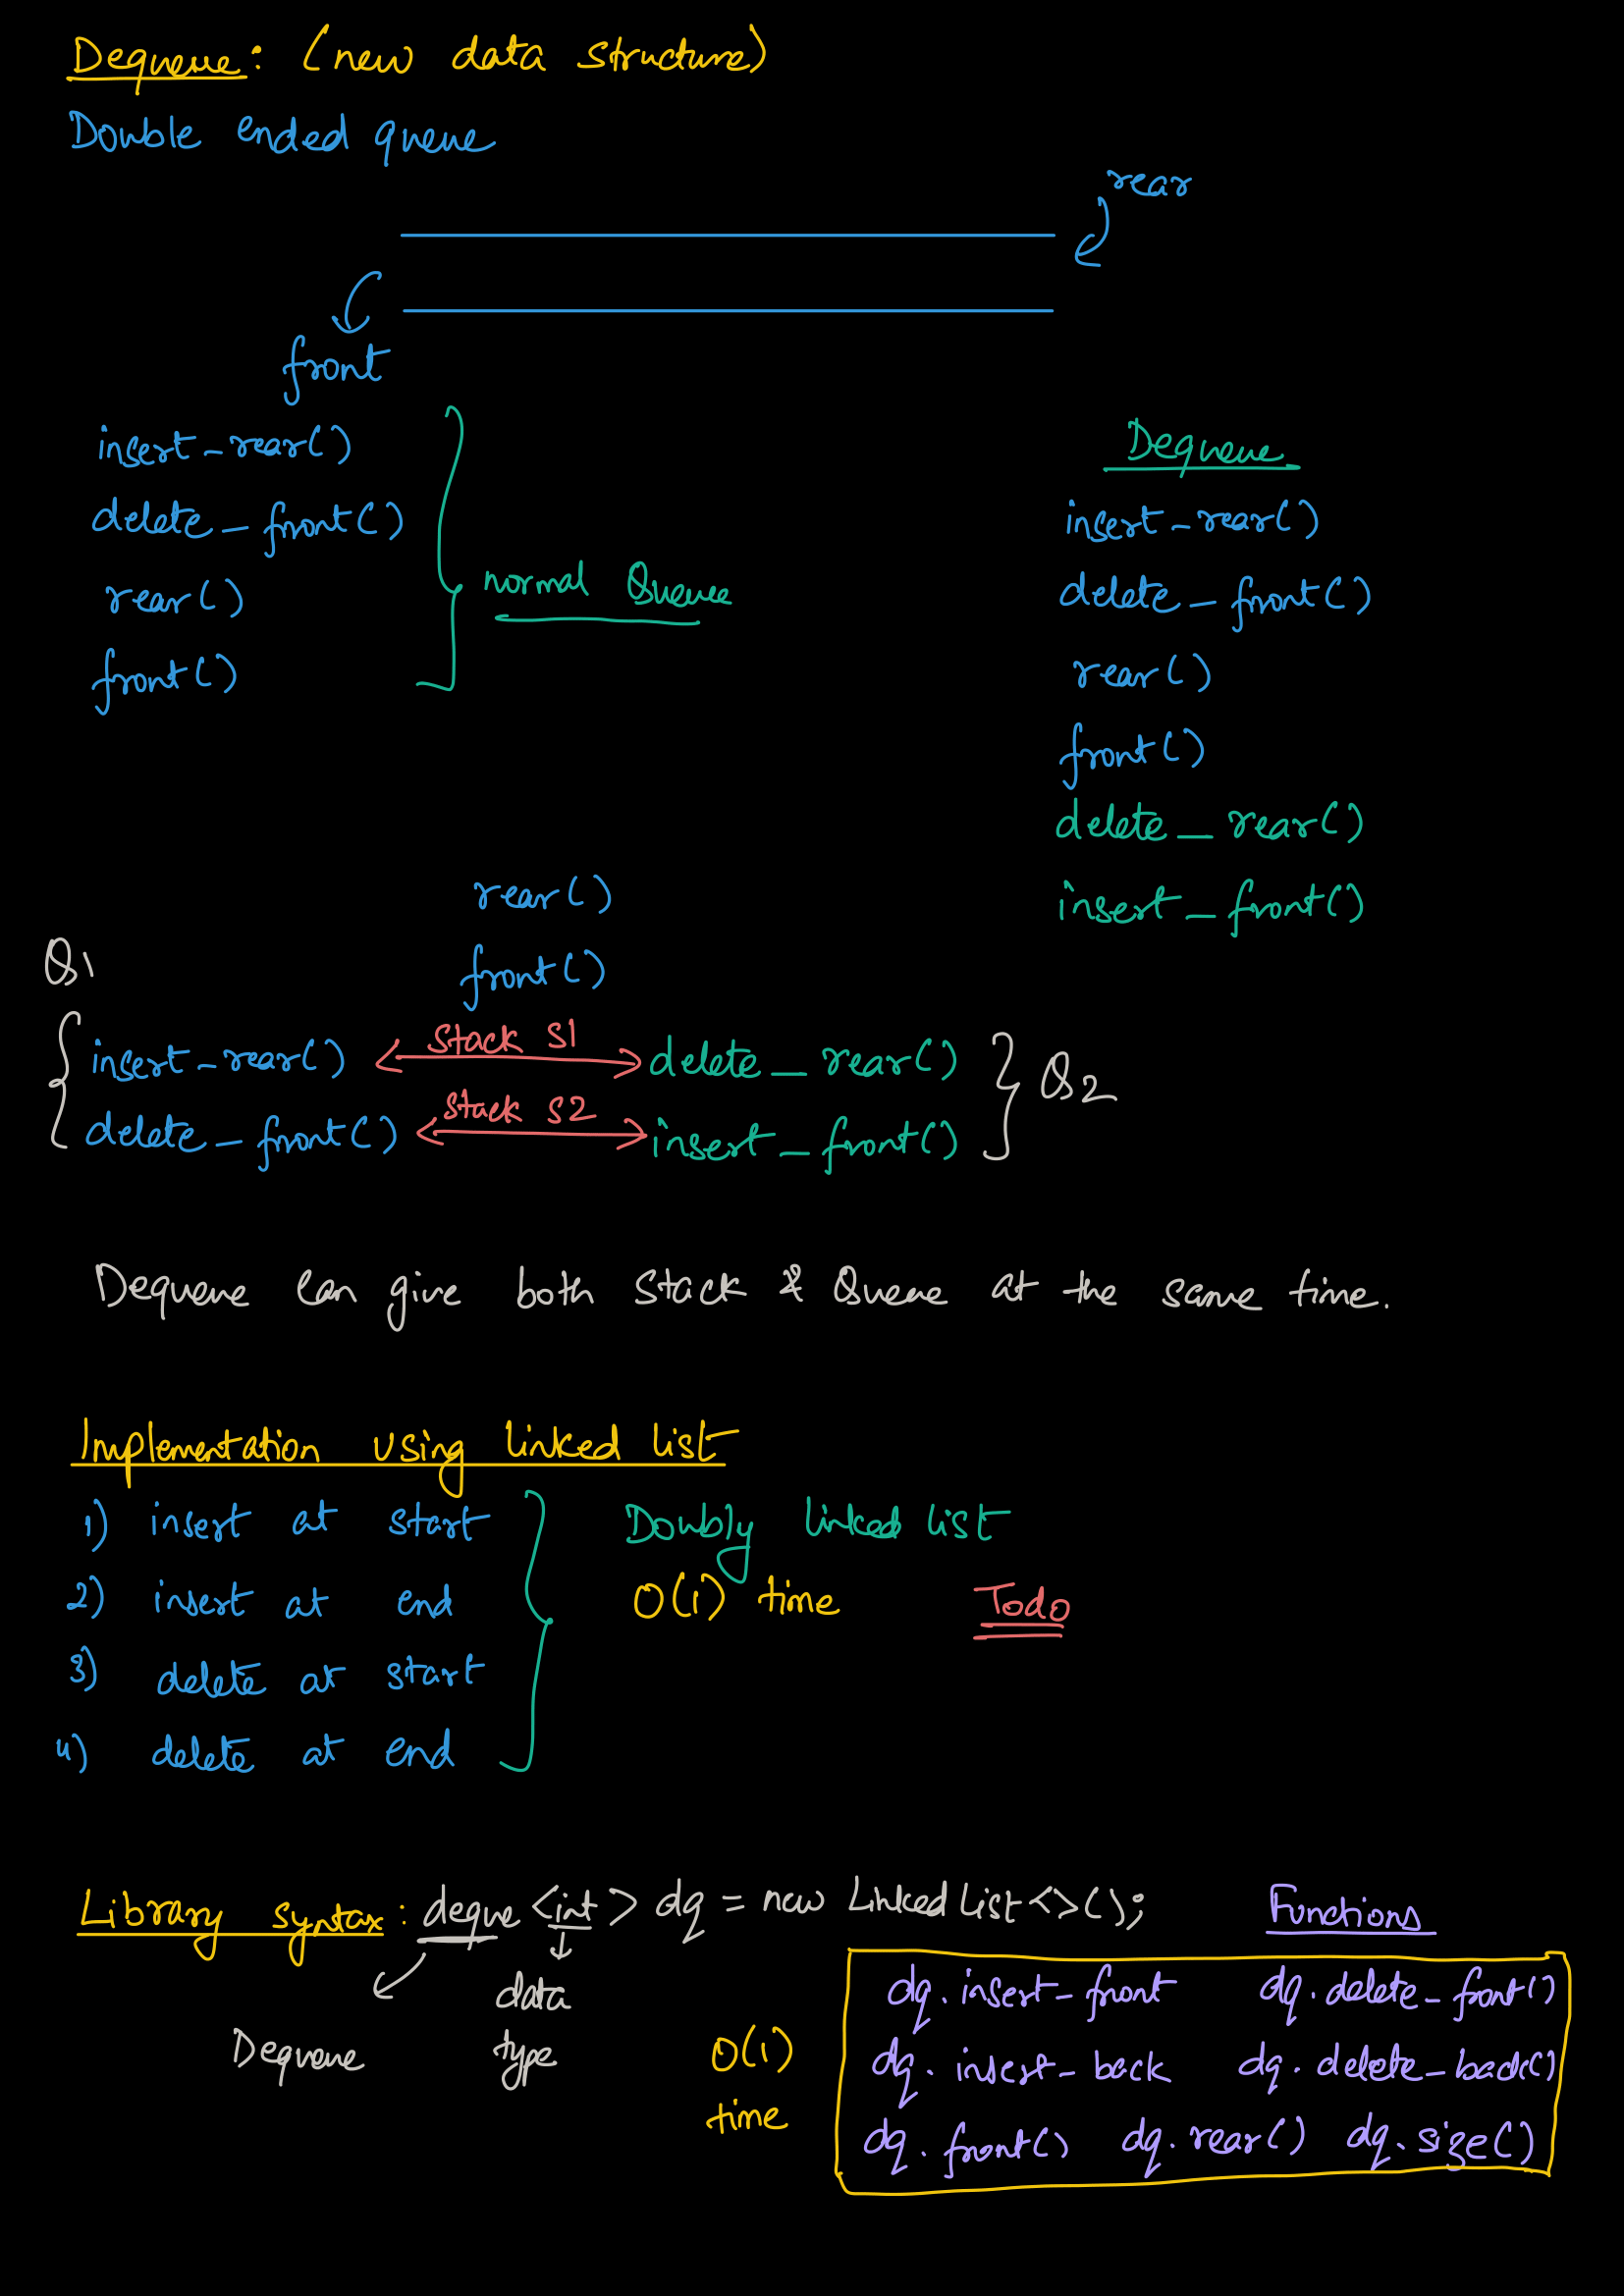 Dequeue: (new data structure)
Double ended queue
rear
front
insert_rear()
delete_front()
rear()
front()
normal Queue
Dequeue
insert_rear()
delete_front()
rear()
front()
delete_rear()
insert_front()
rear()
front()
Q1
insert_rear() stack S1 delete_rear()
delete_front() stack S2 insert_front()
Q2
Dequeue can give both stack & Queue at the same time.
Implementation using linked list
1) insert at start
2) insert at end
3) delete at start
4) delete at end
Doubly linked list
O(1) time Todo
Library syntax: deque <int> dq = new Linked List<>();
Dequeue
data
type
Functions
O(1)
time
dq.insert_front dq.delete_front()
dq.insert_back dq.delete_back()
dq.front() dq.rear() dq.size()